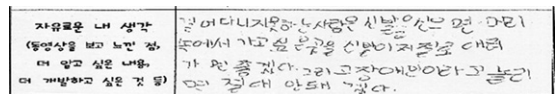 자유로운 내 생각
(동영상을 보고 느낀 점,
더 알고 싶은 내용,
더 개발하고 싶은 것 등)
걸어다니지못하는사람은 신발을신으면 머리
속에서 가고 싶은곳을 신발이저절로 데려
가 면 좋겠다. 그리고장애인이라고 놀리
면 절대 안돼 겠다.